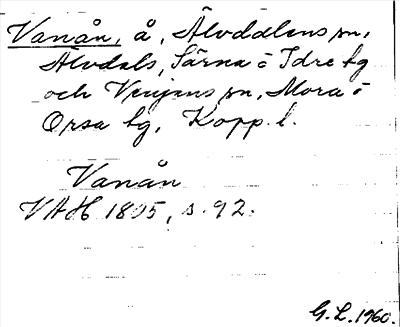 Vanån, å, Älvdalens sn,
Älvdals, Särna o Idre tg
och Venjans sn, Mora o
Orsa tg, Kopp. l.
Vanån
VAH 1805, s. 92.
G. L. 1960.